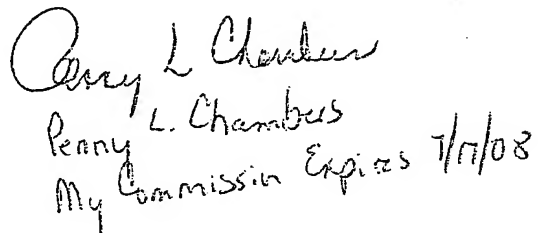 Penny L Chambers
Penny L. Chambers
My Commissin Expires 7/17/08